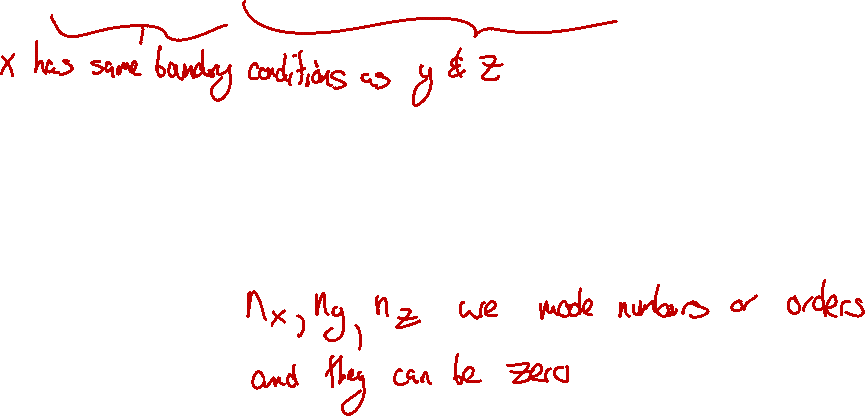 x has same boundry conditions as y & z
n_x, n_y, n_z are mode numbers or orders
and they can be zero